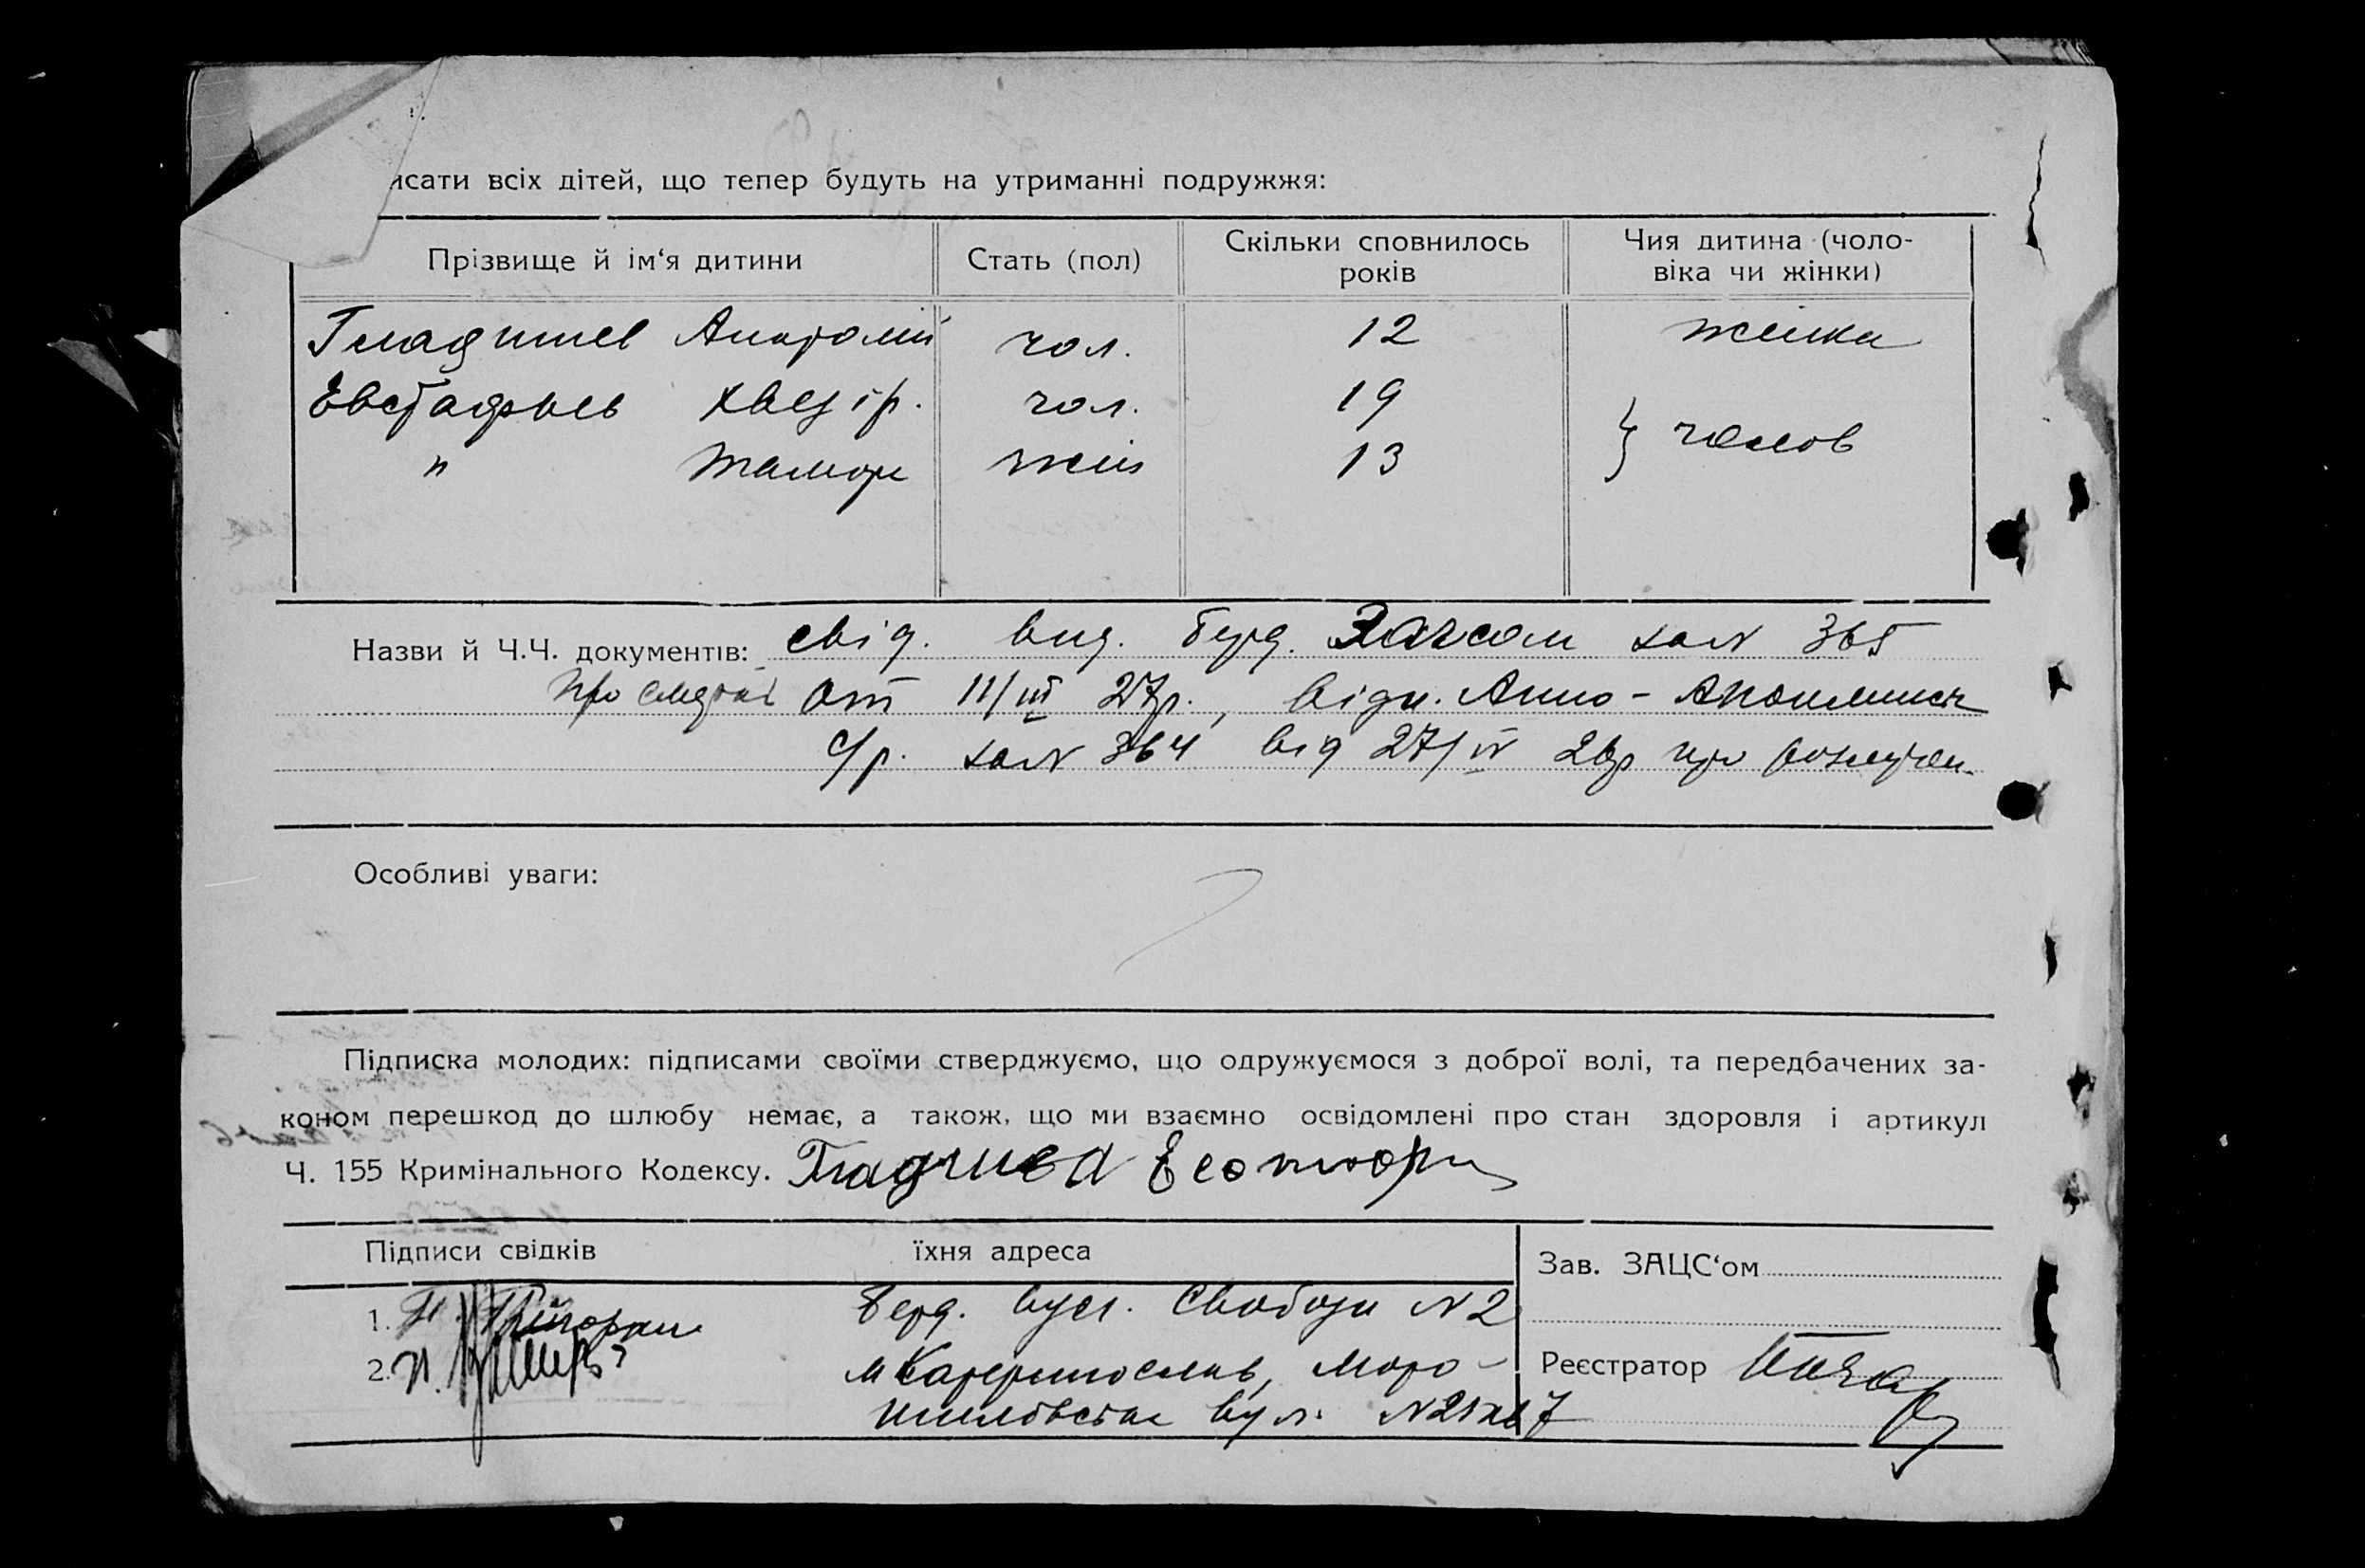 исати всіх дітей, що тепер будуть на утриманні подружжя:
Прізвище й ім'я дитини
Стать (пол)
Скільки сповнилось
років
Чия дитина (чоло-
віка чи жінки)
Анатолій чол. 12 жінки
Евстафьев чол. 19
" Тамара жін 13
} чолов
Назви й Ч.Ч. документів: свід. вид. Берд. Загсом за № 365
про смерть от 11/III 27р., відн. Анно-
с/р. за № 364 від 27/IV 26р про
Особливі уваги:
Підписка молодих: підписами своїми стверджуємо, що одружуємося з доброї волі, та передбачених за-
коном перешкод до шлюбу немає, а також, що ми взаємно освідомлені про стан здоровля і артикул
Ч. 155 Кримінального Кодексу.
Підписи свідків
їхня адреса
Зав. ЗАЦС'ом
1. Берд. вул. Свободи № 2
2. м Катеринослав,
Реєстратор
вул. № 21 кв 7